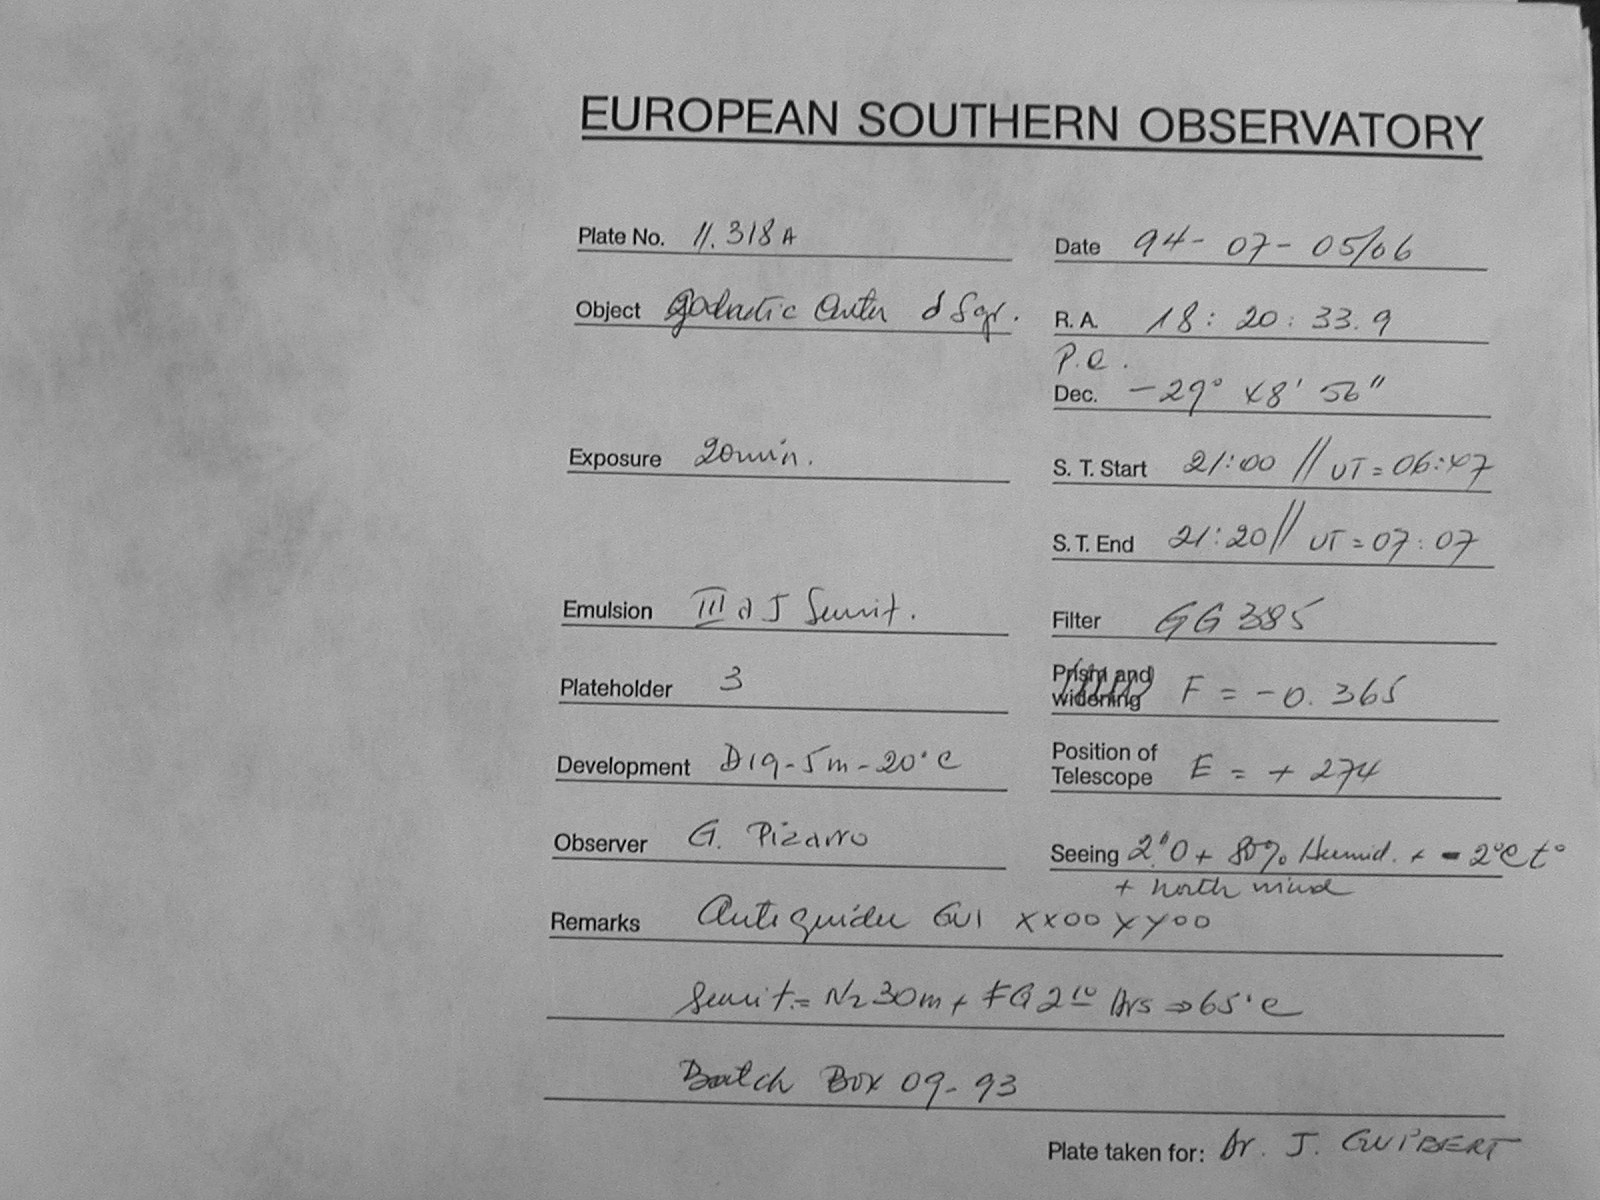 EUROPEAN SOUTHERN OBSERVATORY
Plate No. 11.318A
Date 94-07-05/06
Object galactic Center d Sgr.
R.A. 18:20:33.9
P.C.
Dec. -29° 48' 56"
Exposure 20min.
S.T. Start 21:00 // UT=06:47
S.T. End 21:20// UT=07:07
Emulsion III a J Sensit.
Filter GG 385
Plateholder 3
Prism and widening F = -0.365
Development D19-5m-20°C
Position of Telescope E = + 274
Observer G. Pizarro
Seeing 2"0 + 80% Humid. + -2°C t°
+ north wind
Remarks Autoguider GUI XX00 YY00
Sensit.= N2 30m + FG 2 Hrs ⇒ 65°C
Batch Box 09-93
Plate taken for: Dr. J. GUIBERT